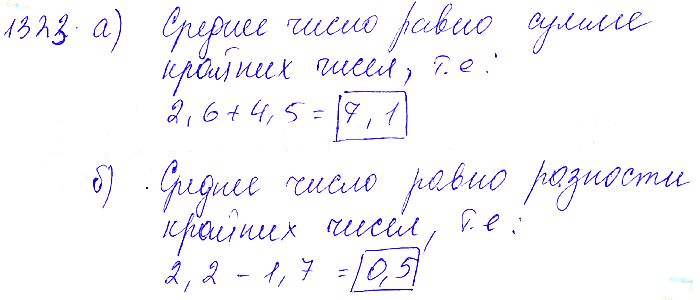 1323. а) Среднее число равно сумме
крайних чисел, т.е:
2,6+4,5=7,1
б) Среднее число равно разности
крайних чисел, т.е:
2,2-1,7=0,5